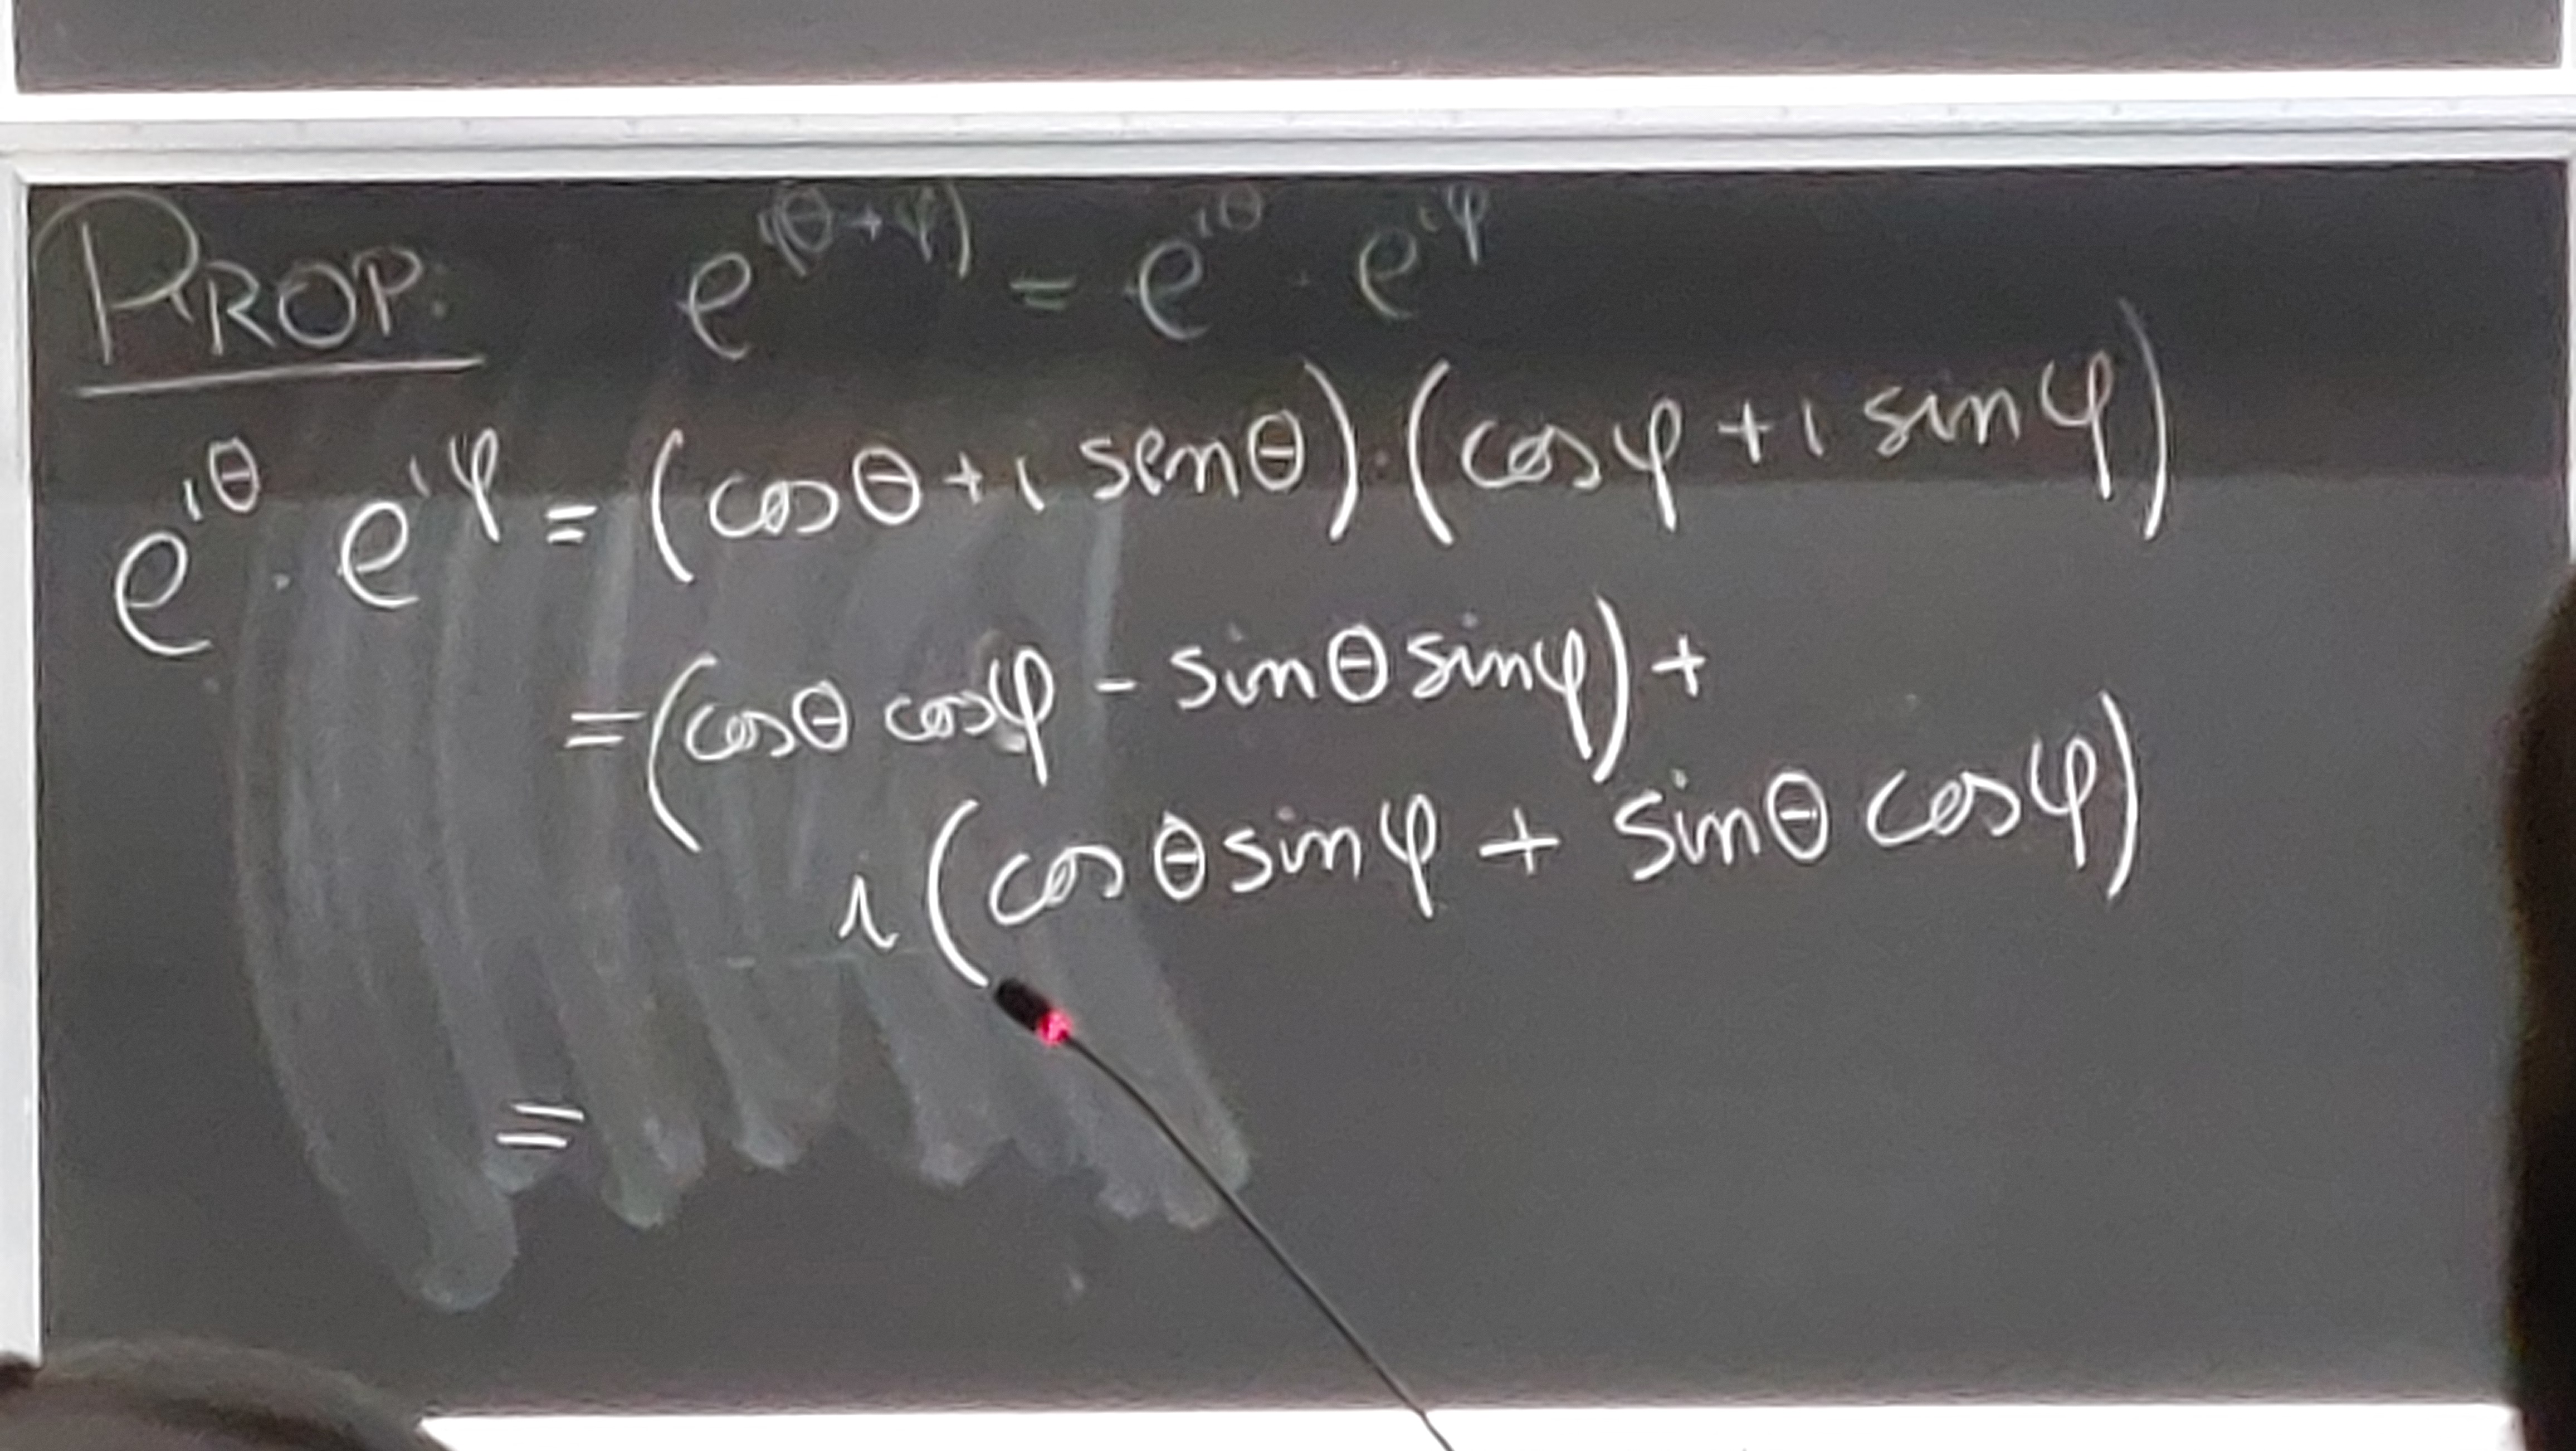 PROP. e^{i(θ+φ)} = e^{iθ} · e^{iφ}
e^{iθ} · e^{iφ} = (cosθ + i senθ) · (cosφ + i sinφ)
= (cosθ cosφ - sinθ sinφ) +
i (cosθ sinφ + sinθ cosφ)
=